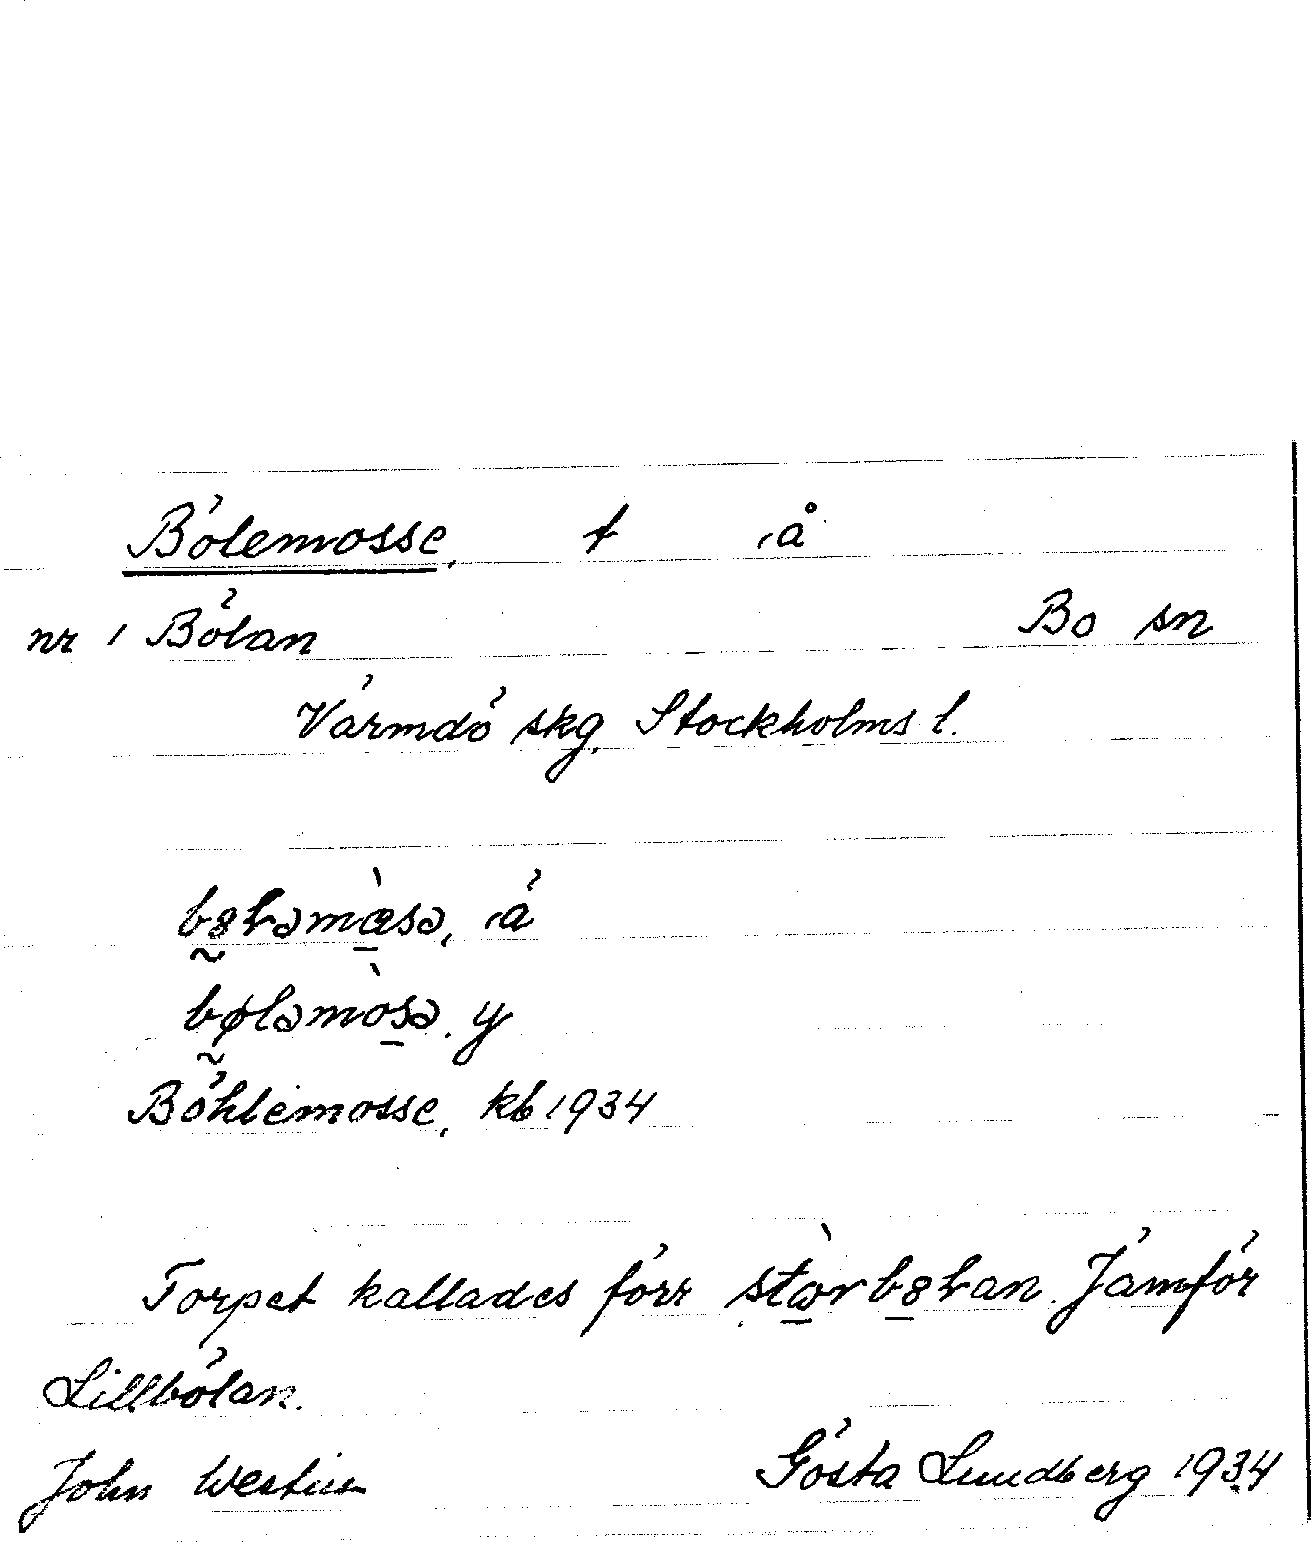 Bölemosse, t ,å
nr 1 Bölan Bo sn
Värmdö skg, Stockholms l.
bøɫəmɷ̀sə, ,ä
bøləmòsə. y
Böhlemosse, kb 1934
Torpet kallades förr stɷ̀rbøɫan. Jämför
Lillbölan.
John Westin Gösta Lundberg 1934